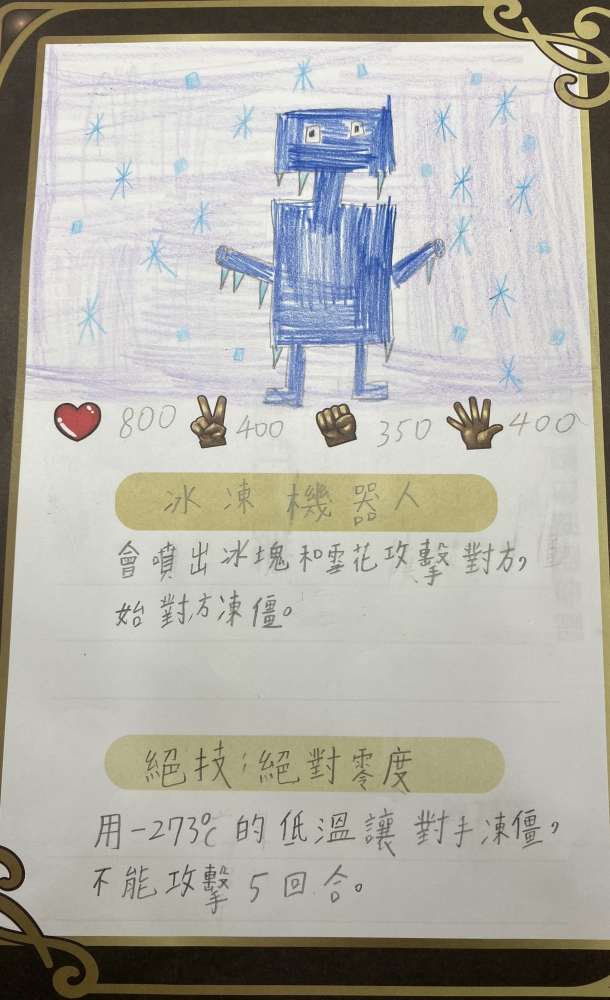 800 400 350 400
冰凍機器人
會噴出冰塊和雪花攻擊對方,
始對方凍僵。
絕技:絕對零度
用-273℃的低溫讓對手凍僵,
不能攻擊5回合。